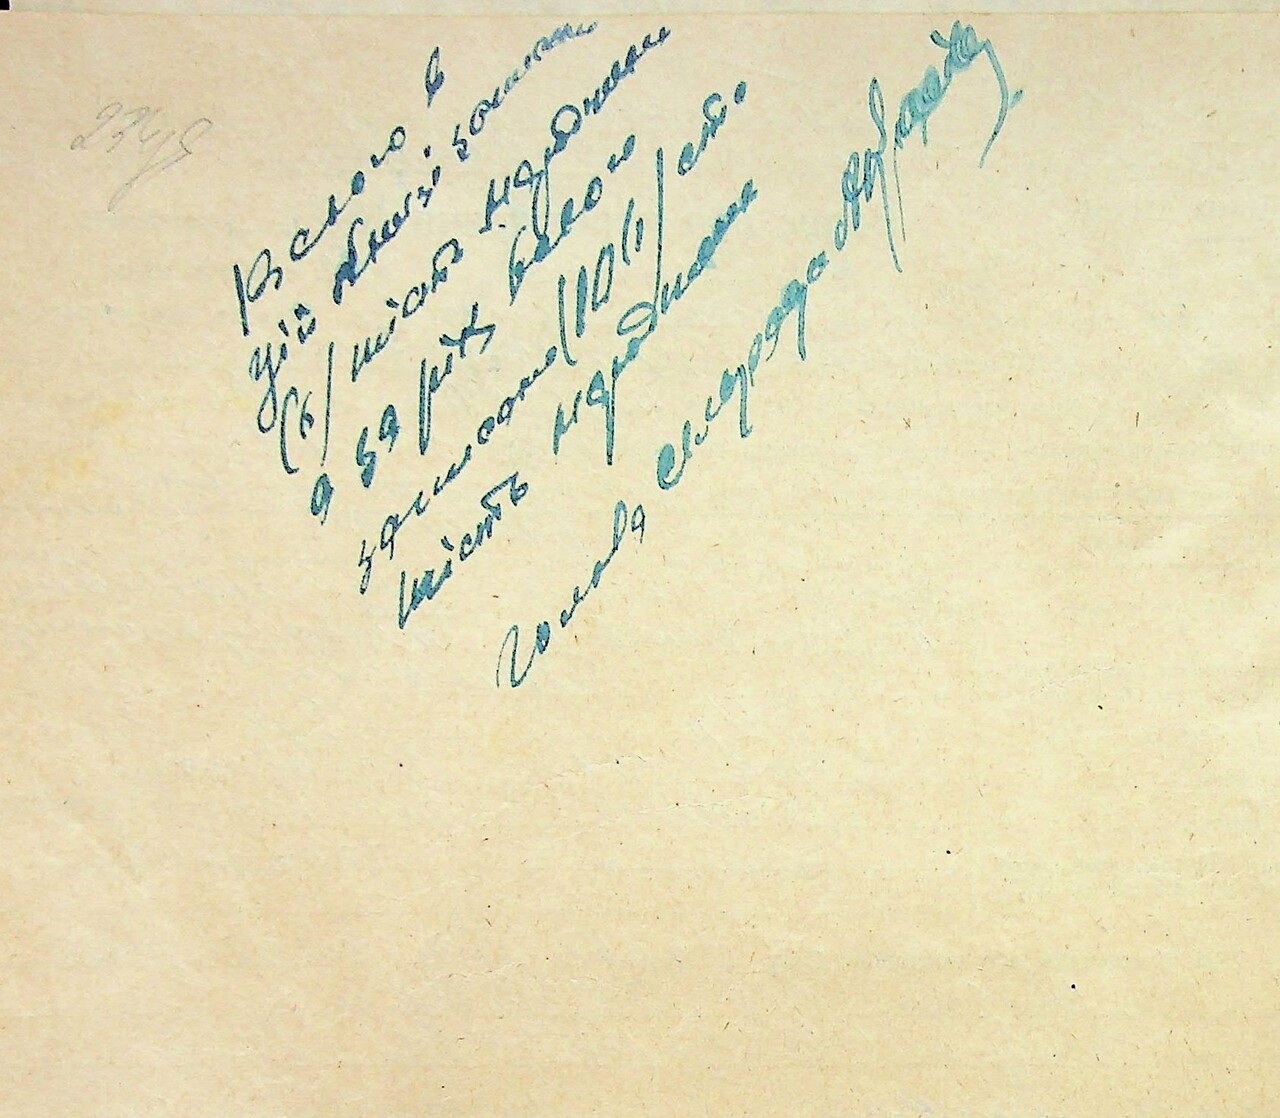 Всього в
цій книзі записано
(6) шість народжень
а за рік всього
записано (106) сто
шість народжень
Голова сільради